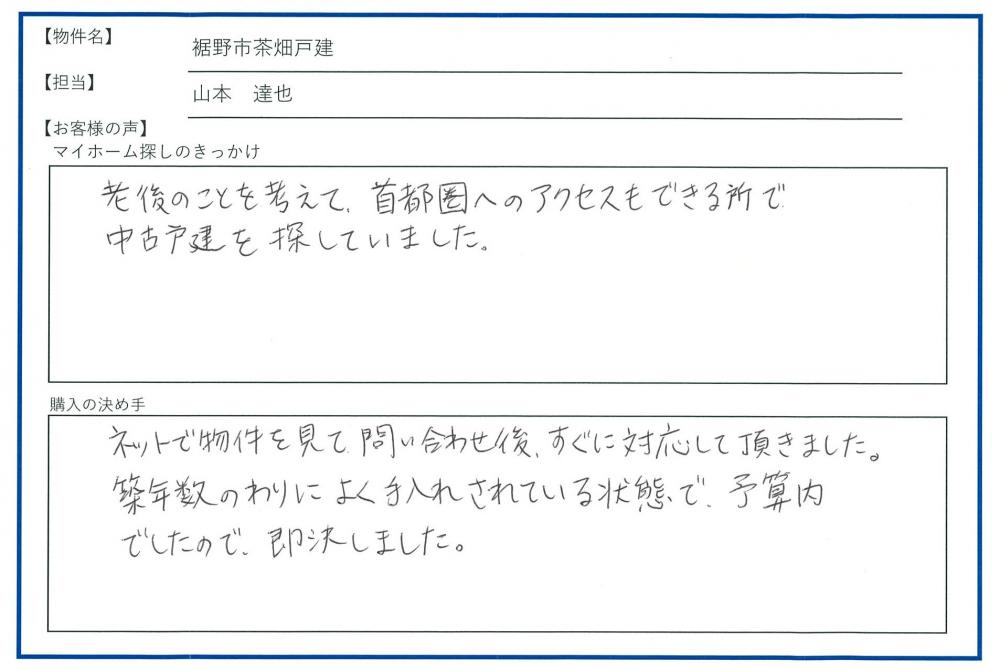 【物件名】
裾野市茶畑戸建
【担当】
山本　達也
【お客様の声】
マイホーム探しのきっかけ
老後のことを考えて、首都圏へのアクセスもできる所で
中古戸建を探していました。
購入の決め手
ネットで物件を見て、問い合わせ後、すぐに対応して頂きました。
築年数のわりによく手入れされている状態で、予算内
でしたので、即決しました。